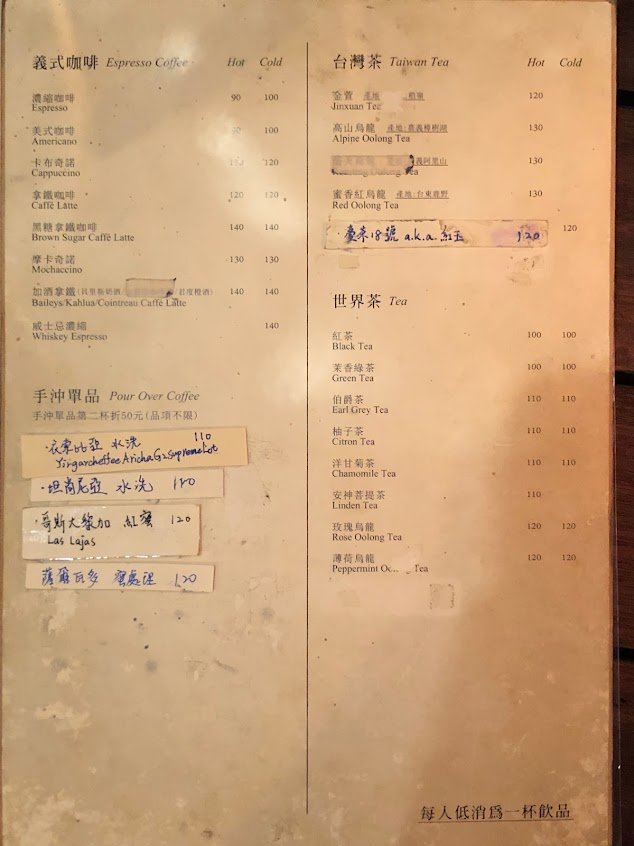 義式咖啡 Espresso Coffee Hot Cold
濃縮咖啡
Espresso 90 100
美式咖啡
Americano 90 100
卡布奇諾
Cappuccino 120
拿鐵咖啡
Caffé Latte 120 120
黑糖拿鐵咖啡
Brown Sugar Caffé Latte 140 140
摩卡奇諾
Mochaccino 130 130
加酒拿鐵(貝里斯奶酒/君度橙酒) 140 140
Baileys/Kahlua/Cointreau Caffé Latte
威士忌濃縮
Whiskey Espresso 140
手沖單品 Pour Over Coffee
手沖單品第二杯折50元(品項不限)
·衣索比亞 水洗 110
Yirgarcheffee Aricha G2 Supreme Lot
·坦尚尼亞 水洗 120
·哥斯大黎加 紅蜜 120
Las Lajas
薩爾瓦多 蜜處理 120
台灣茶 Taiwan Tea Hot Cold
金萱 產地
Jinxuan Tea 120
高山烏龍 產地:嘉義樟樹湖
Alpine Oolong Tea 130
義阿里山
Oolong Tea 130
蜜香紅烏龍 產地:台東鹿野
Red Oolong Tea 130
·臺茶18號 a.k.a. 紅玉 120 120
世界茶 Tea
紅茶
Black Tea 100 100
茉香綠茶
Green Tea 100 100
伯爵茶
Earl Grey Tea 110 110
柚子茶
Citron Tea 110 110
洋甘菊茶
Chamomile Tea 110 110
安神菩提茶
Linden Tea 110
玫瑰烏龍
Rose Oolong Tea 120 120
薄荷烏龍
Peppermint Tea 120 120
每人低消為一杯飲品